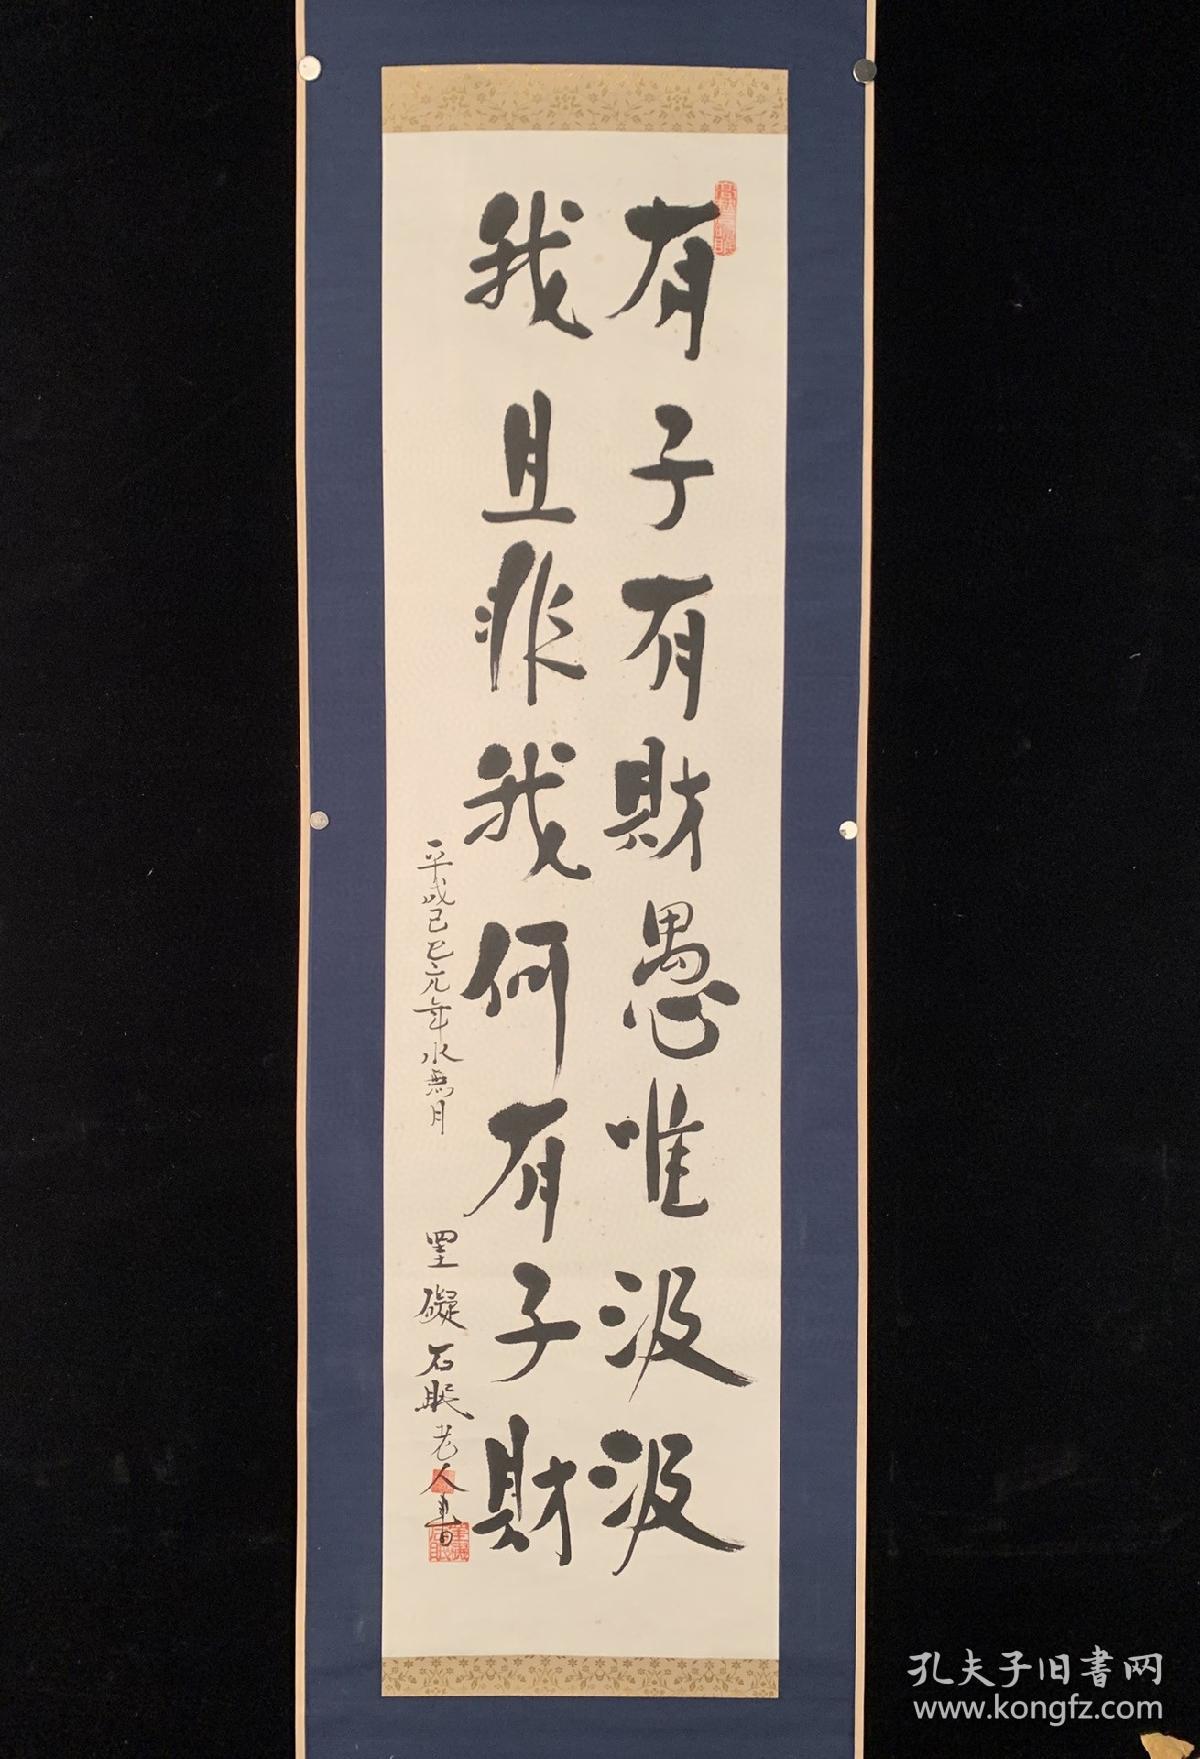 有子有財愚唯汲汲
我且非我何有子財
平成己巳元年水無月
罣礙石眠老人書
孔夫子旧書网
www.kongfz.com